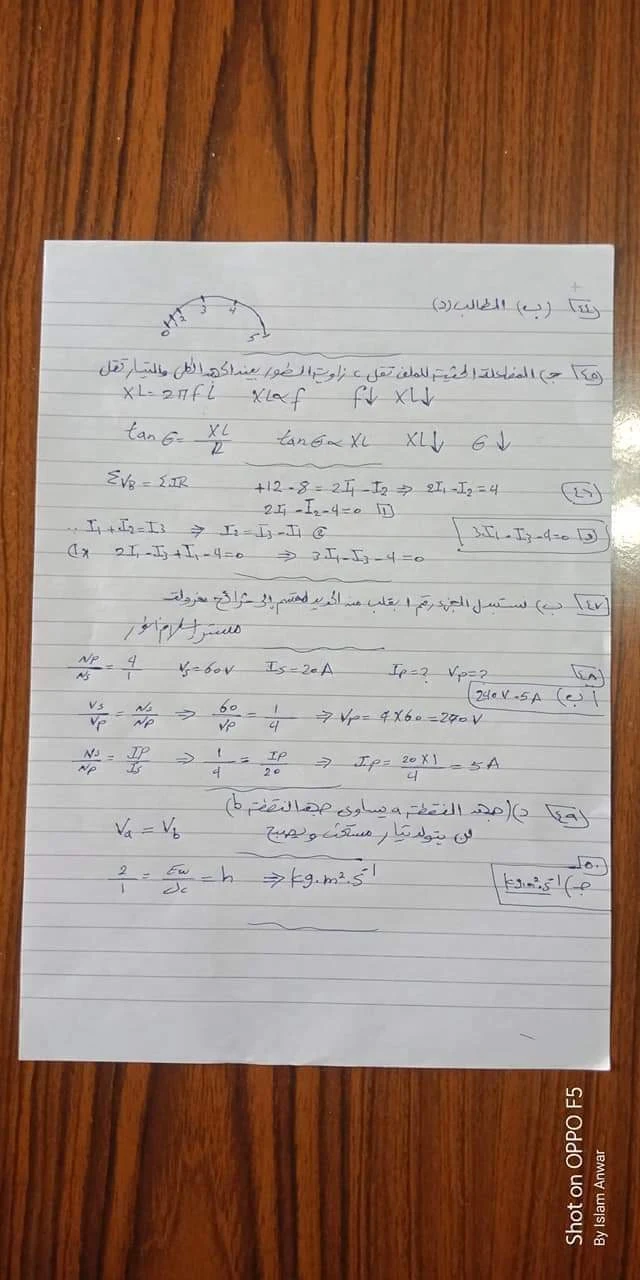 ٤٤ (ب) الطالب (د)
0 1 2 3 4 5
٤٥ ج) المفاعلة الحثية للملف تقل، زاوية الطور بين الجهد الكلى والتيار تقل
XL = 2πfL XL∝f f↓ XL↓
tan θ = XL/R tan θ ∝ XL XL↓ θ↓
٤٦ ΣVB = ΣIR +12 - 8 = 2I₁ - I₂ ⇒ 2I₁ - I₂ = 4
2I₁ - I₂ - 4 = 0 [1]
∴ I₁ + I₂ = I₃ ⇒ I₂ = I₃ - I₁ ②
2I₁ - I₃ + I₁ - 4 = 0 ⇒ 3I₁ - I₃ - 4 = 0
3I₁ - I₃ - 4 = 0
٤٧ ب) نستبدل الجزء رقم 1 بقلب من الحديد مقسم إلى شرائح معزولة
٤٨ Np/Ns = 4/1 Vs = 60V Is = 20A Ip = ? Vp = ?
ب) 240V - 5A
Vs/Vp = Ns/Np ⇒ 60/Vp = 1/4 ⇒ Vp = 4×60 = 240V
Ns/Np = Ip/Is ⇒ 1/4 = Ip/20 ⇒ Ip = 20×1/4 = 5A
٤٩ د) (جهد النقطة a يساوى جهد النقطة b)
لن يتولد تيار مستحث ويصبح Va = Vb
٥٠
ج) kg.m².s⁻¹
2/1 = Ew/υc = h ⇒ kg.m².s⁻¹
Shot on OPPO F5
By Islam Anwar